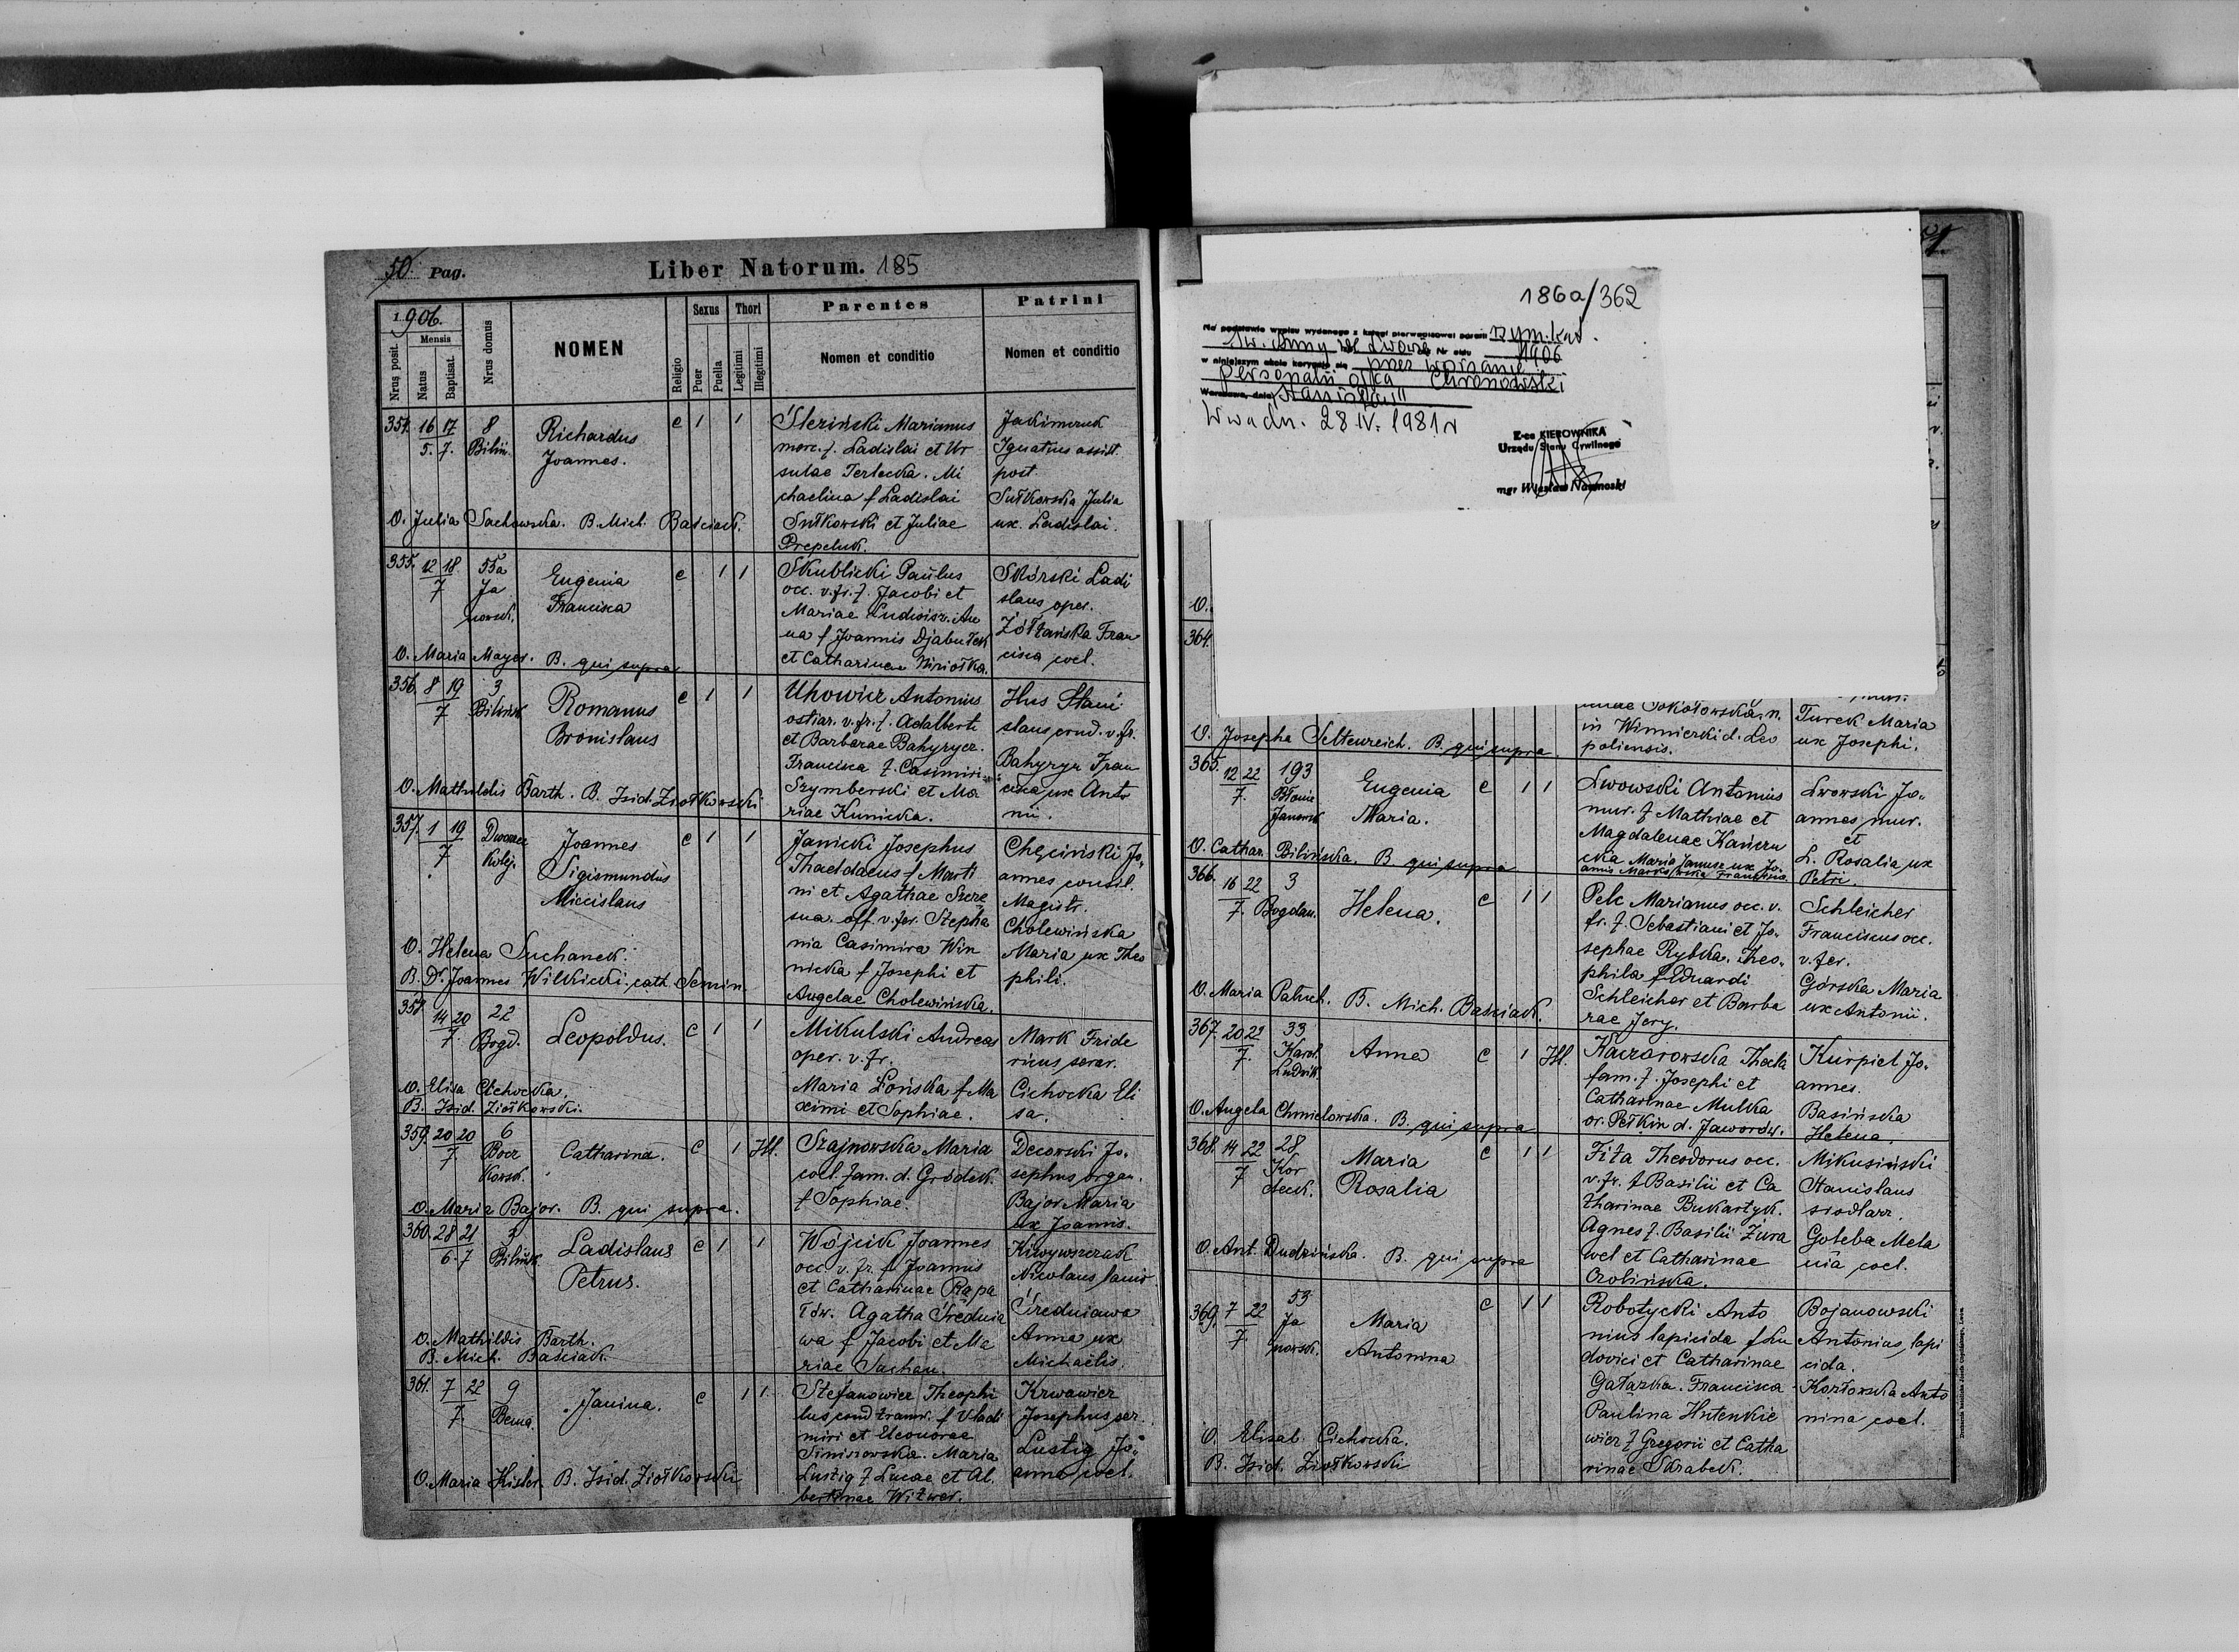 50. Pag.
Liber Natorum. 185
1906.
Nrus posit.
Mensis
Natus
Baptisat.
Nrus domus
NOMEN
Religio
Sexus
Puer
Puella
Thori
Legitimi
Illegitimi
Parentes
Nomen et conditio
Patrini
Nomen et conditio
354. 16 17 8 Richardus c 1 1 Śleziński Marianus
5. 7. Bilin. Joannes. merc. f. Ladislai et Ur
sulae Terlecka. Mi
chaelina f Ladislai
Sutkowski et Juliae
Prepeluk.
Jakimczuk
Ignatius assist.
post.
Sutkowska Julia
ux. Ladislai.
O. Julia Sachowska. B. Mich. Baściak.
355. 12 18 55a Eugenia c 1 1 Skublicki Paulus
7 Ja Francisca occ. v. fr. f. Jacobi et
nowsk. Mariae Ludwisz. An
na f Joannis Djabułek
et Catharinae
Skórski Ladi
slaus oper.
Żółtańska Fran
cisca coel.
O. Maria Mayer. B. qui supra
356. 8 19 3 Romanus c 1 1 Uhowicz Antonius
7 Bilińsk Bronislaus ostiar. v. fr. f. Adalberti
et Barbarae Bahyrycz.
Francisca f. Casimiri
Szymberski et Ma
riae Kunicka.
Hus Stani
slaus cond. v. fr.
Bahyrycz Fran
cisca ux Anto
nii.
O. Mathildis Barth. B. Isid. Ziołkowski
357. 1 19 Dworzec Joannes c 1 1 Janicki Josephus
7 Kolej. Sigismundus Thaddaeus f Marti
Miecislaus ni et Agathae Szcze
sna. off. v. fer. Stepha
nia Casimira Win
nicka f Josephi et
Angelae Cholewińska.
Chęciński Jo.
annes consil.
Magistr.
Cholewińska
Maria ux Theo
phili.
O. Helena Suchanek.
B. Dr. Joannes Wilkicki cath. Semin.
358 14 20 22 Leopoldus. c 1 1 Mikulski Andreas
7. Bogd. oper. v. fr.
Maria Łońska f Ma
ximi et Sophiae.
Mark Fride
ricus serar.
Cichocka Eli
sa.
O. Elisa Cichocka.
B. Isid. Ziołkowski.
359. 20 20 6 Catharina. c 1 Ill. Szajnowska Maria
7. Bocz coel. fam. d. Gródek.
Kowsk. f Sophiae.
Decowski Jo.
sephus organ.
Bajor Maria
ux Joannis.
O. Maria Bajor. B. qui supra.
360. 28 21 3 Ladislaus c 1 1 Wójcik Joannes
6. 7 Bilińsk. Petrus. occ. v. fr. f Joannis
et Catharinae Rąpa
łów. Agatha Średnia
wa f Jacobi et Ma
riae Suchan.
Kiwywszczak
Nicolaus lanio
Średniawa
Anna ux
Michaelis.
O. Mathildis Barth.
B. Mich. Baściak.
361. 7 22 9 Janina. c 1 1 Stefanowicz Theophi
7. Bema. lus cond tramw. f Vladi
miri et Eleonorae
Siniszowska. Maria
Lustig f Lucae et Al.
bertinae Witwer.
Krwawicz
Josephus ser.
Lustig Jo
anna coel.
O. Maria Kisler. B. Isid. Ziołkowski
51.
186a/362
Na podstawie wypisu wydanego z księgi pierwopisowej parafii rzym. kat.
Św. Anny we Lwowie Nr aktu 1906
w niniejszym akcie koryguje się przez wpisanie
personalii ojca Chronowski
Warszawa, dnia Stanisław"
W-wa dn. 28 IV. 1981 r
Z-ca KIEROWNIKA
Urzędu Stanu Cywilnego
mgr Wiesław
O.
364.
Sokołowska. n.
in Winniczki d. Leo
poliensis.
Turek Maria
ux Josephi.
O. Josepha Seltenreich. B. qui supra
365. 12 22 193 Eugenia c 1 1 Lwowski Antonius
7. Błonie Maria. mur. f Mathiae et
Janowsk Magdalenae Kańczu
cka Maria Janusz ux Jo.
Lwowski Jo.
annes mur.
et
L. Rosalia ux
Petri.
O. Cathar. Bilińska. B qui supra
366. 16 22 3 Helena. c 1 1 Pelc Marianus occ. v.
7. Bogdan. fr. f. Sebastiani et Jo.
sephae Rybka. Theo.
phila f Eduardi
Schleicher et Barba
rae Jery.
Schleicher
Franciscus occ.
v. fer.
Górska Maria
ux Antonii.
O. Maria Patuch. B. Mich. Baściak.
367. 20 22 33 Anna c 1 Ill. Kaczorowska Thecla
7. Karol. fam. f. Josephi et
Ludwik. Catharinae Mulka
or. Pełkin d. Jaworów.
Kurpiel Jo.
annes.
Basińska
Helena.
O. Angela Chmielowska. B. qui supra
368. 14 22 28 Maria c 1 1 Fita Theodorus occ.
7 Kor Rosalia v. fr. f Basilii et Ca
deck. tharinae Bukartyk.
Agnes f. Basilii Żura
wel et Catharinae
Ozolińska.
Mikusiński
Stanislaus
siodlarz.
Gołeba Mela
nia coel.
O. Ant. Dudzińska. B. qui supra
369. 7 22 53 Maria c 1 1 Robotycki Anto
7. Ja Antonina nius lapicida f Lu
nowsk. dovici et Catharinae
Gałązka. Francisca
Paulina Hutenkie
wicz f Gregorii et Catha
rinae Skrabek.
Bojanowski
Antonius, lapi
cida.
Kozłowska Anto
nina coel.
O. Elisab. Cichocka.
B. Isid. Ziołkowski